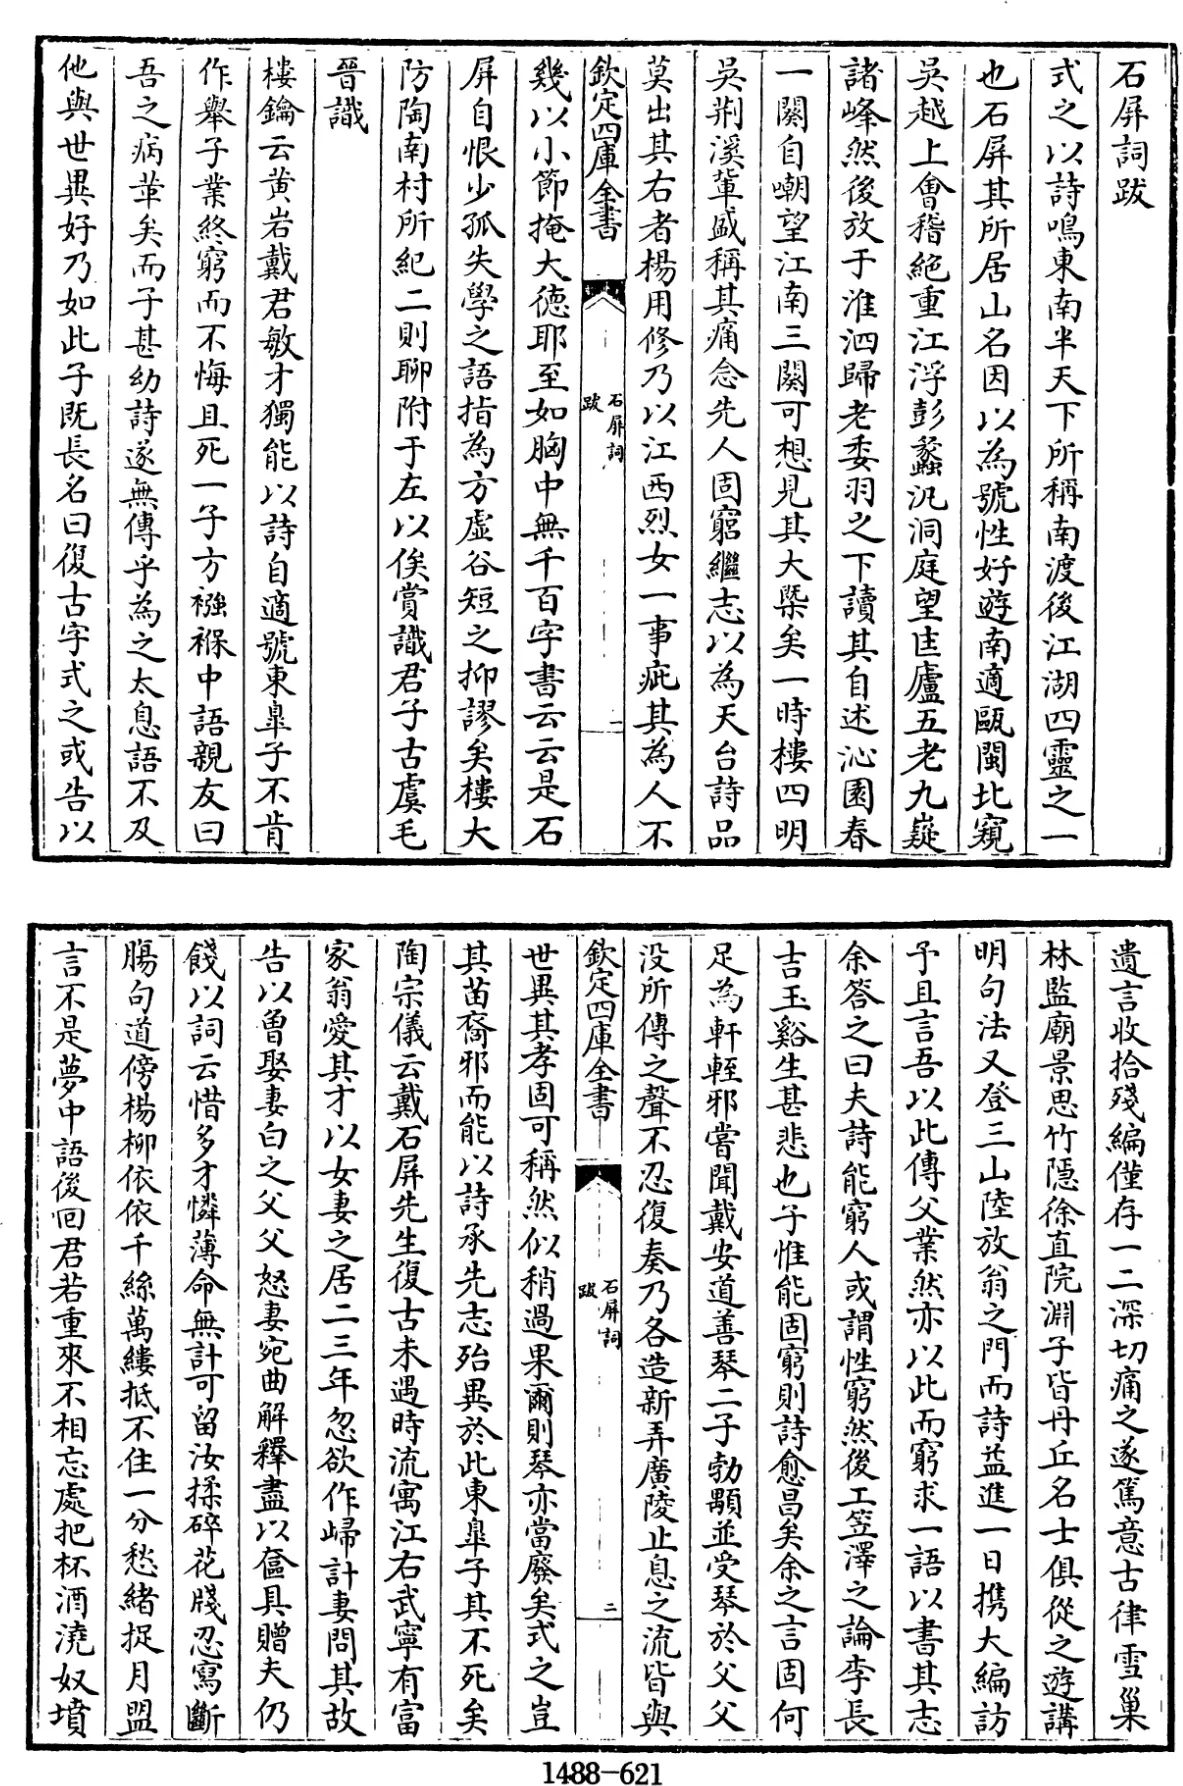 石屏詞跋
式之以詩鳴東南半天下所稱南渡後江湖四靈之一
也石屏其所居山名因以為號性好遊南適甌閩北窺
吳越上會稽絶重江浮彭蠡汎洞庭望匡廬五老九嶷
諸峰然後放于淮泗歸老委羽之下讀其自述沁園春
一闋自嘲望江南三闋可想見其大槩矣一時樓四明
吳荆溪輩盛稱其痛念先人固窮繼志以為天台詩品
莫出其右者楊用修乃以江西烈女一事疵其為人不
欽定四庫全書
石屏詞
跋
一
幾以小節掩大德耶至如胸中無千百字書云云是石
屏自恨少孤失學之語指為方虛谷短之抑謬矣樓大
防陶南村所紀二則聊附于左以俟賞識君子古虞毛
晉識
樓鑰云黄岩戴君敏才獨能以詩自適號東臯子不肯
作舉子業終窮而不悔且死一子方襁褓中語親友曰
吾之病革矣而子甚幼詩遂無傳乎為之太息語不及
他與世異好乃如此子既長名曰復古字式之或告以
遺言收拾殘編僅存一二深切痛之遂篤意古律雪巢
林監廟景思竹隱徐直院淵子皆丹丘名士俱從之遊講
明句法又登三山陸放翁之門而詩益進一日携大編訪
予且言吾以此傳父業然亦以此而窮求一語以書其志
余答之曰夫詩能窮人或謂性窮然後工笠澤之論李長
吉玉谿生甚悲也子惟能固窮則詩愈昌矣余之言固何
足為軒輊邪嘗聞戴安道善琴二子勃顒並受琴於父父
没所傳之聲不忍復奏乃各造新弄廣陵止息之流皆與
欽定四庫全書
石屏詞
跋
二
世異其孝固可稱然似稍過果爾則琴亦當廢矣式之豈
其苗裔邪而能以詩承先志殆異於此東臯子其不死矣
陶宗儀云戴石屏先生復古未遇時流寓江右武寧有富
家翁愛其才以女妻之居二三年忽欲作歸計妻問其故
告以曽娶妻白之父父怒妻宛曲解釋盡以奩具贈夫仍
餞以詞云惜多才憐薄命無計可留汝揉碎花牋忍寫斷
腸句道傍楊柳依依千絲萬縷抵不住一分愁緒捉月盟
言不是夢中語後回君若重來不相忘處把杯酒澆奴墳
1488-621